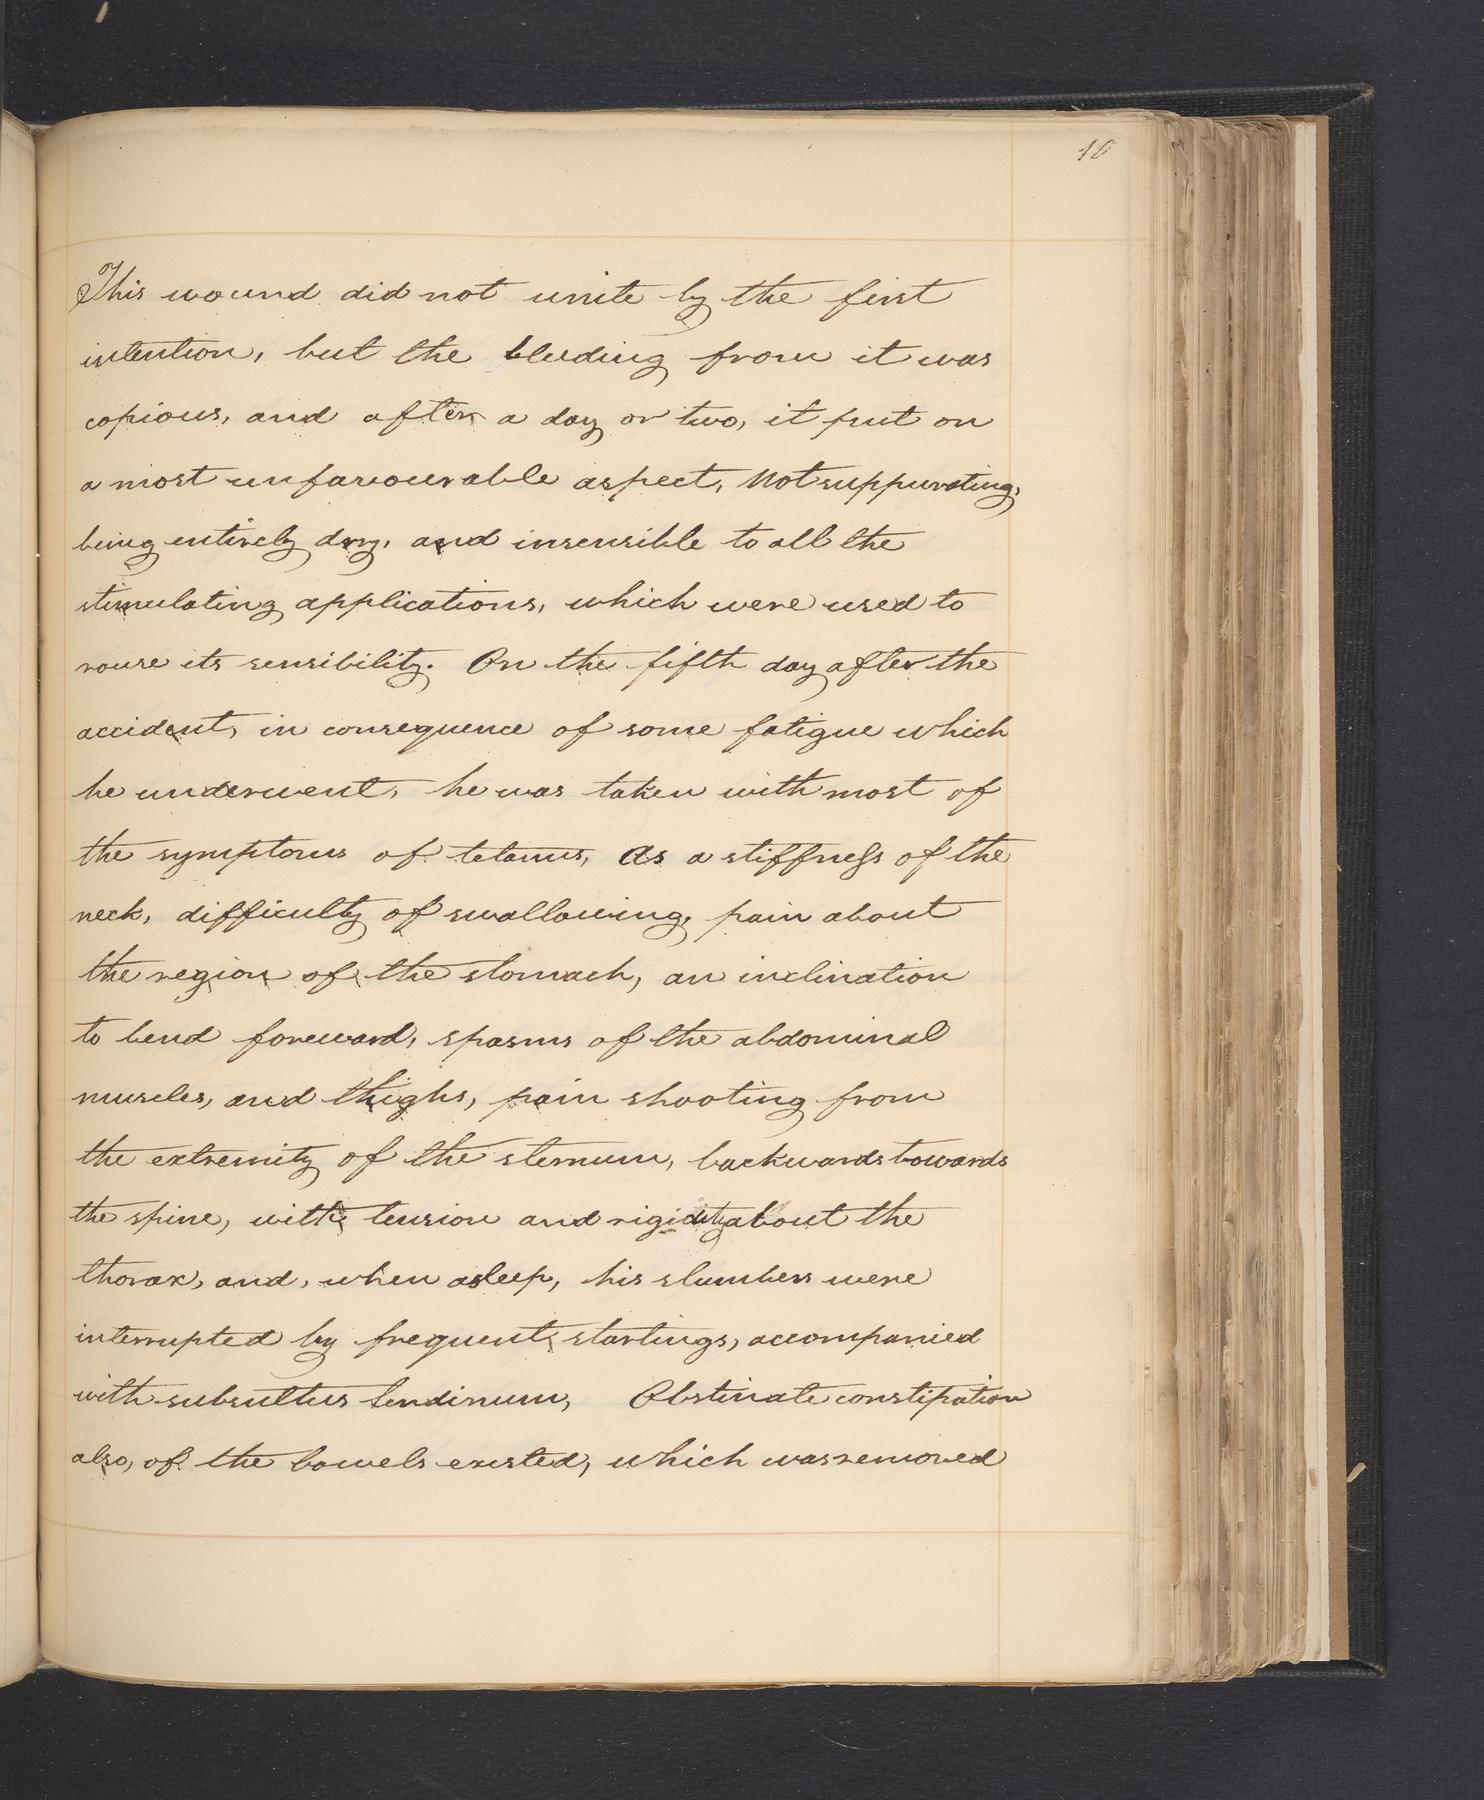 10
This wound did not unite by the first
intention, but the bleeding from it was
copious, and after a day or two, it put on
a most unfavourable aspect, Not suppurating,
being entirely dry, and insensible to all the
stimulating applications, which were used to
rouse its sensibility. On the fifth day after the
accident, in consequence of some fatigue which
he underwent, he was taken with most of
the symptoms of tetanus, as a stiffness of the
neck, difficulty of swallowing, pain about
the region of the stomach, an inclination
to bend foreward, spasms of the abdominal
muscles, and thighs, pain shooting from
the extremity of the sternum, backwards towards
the spine, with tension and rigidity about the
thorax, and, when asleep, his slumbers were
interrupted by frequent startings, accompanied
with subsultus tendinum, Obstinate constipation
also, of the bowels existed, which was removed